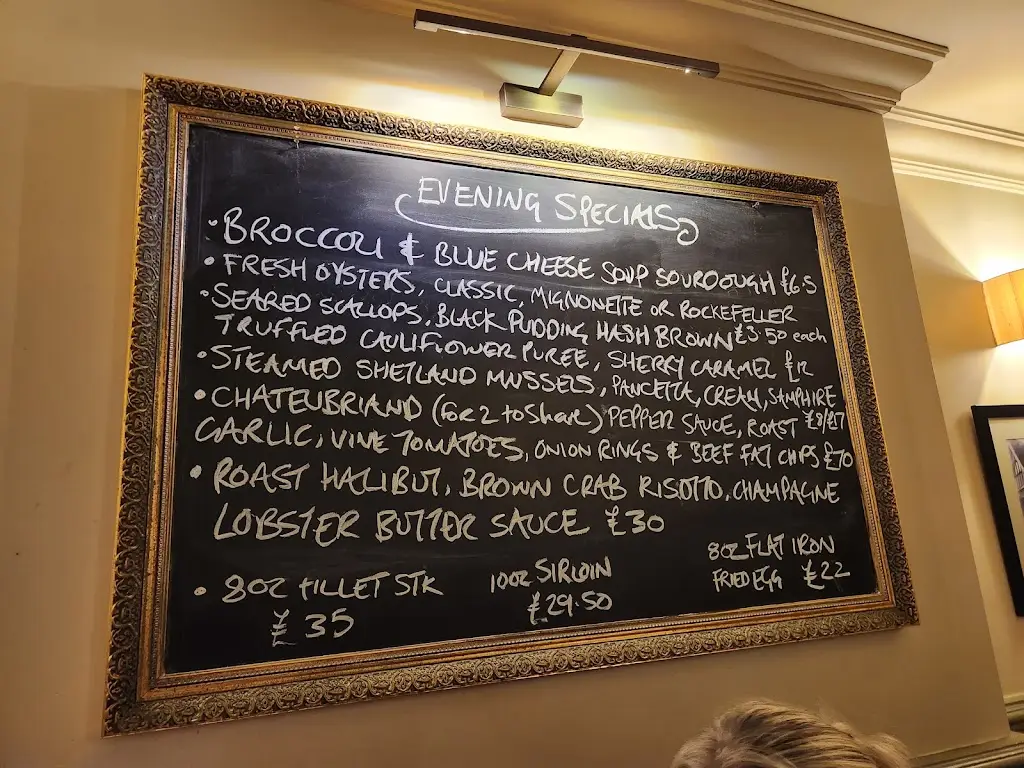 EVENING SPECIALS
• BROCCOLI & BLUE CHEESE SOUP SOURDOUGH £6.5
• FRESH OYSTERS, CLASSIC, MIGNONETTE OR ROCKEFELLER
£3.50 each
• SEARED SCALLOPS, BLACK PUDDING HASH BROWN
TRUFFLED CAULIFLOWER PUREE, SHERRY CARAMEL £12
• STEAMED SHETLAND MUSSELS, PANCETTA, CREAM, SAMPHIRE
£8/£17
• CHATEUBRIAND (For 2 to Share) PEPPER SAUCE, ROAST
GARLIC, VINE TOMATOES, ONION RINGS & BEEF FAT CHIPS £70
• ROAST HALIBUT, BROWN CRAB RISOTTO, CHAMPAGNE
LOBSTER BUTTER SAUCE £30
• 8OZ FILLET STK
£35
10OZ SIRLOIN
£29.50
8OZ FLAT IRON
FRIED EGG £22